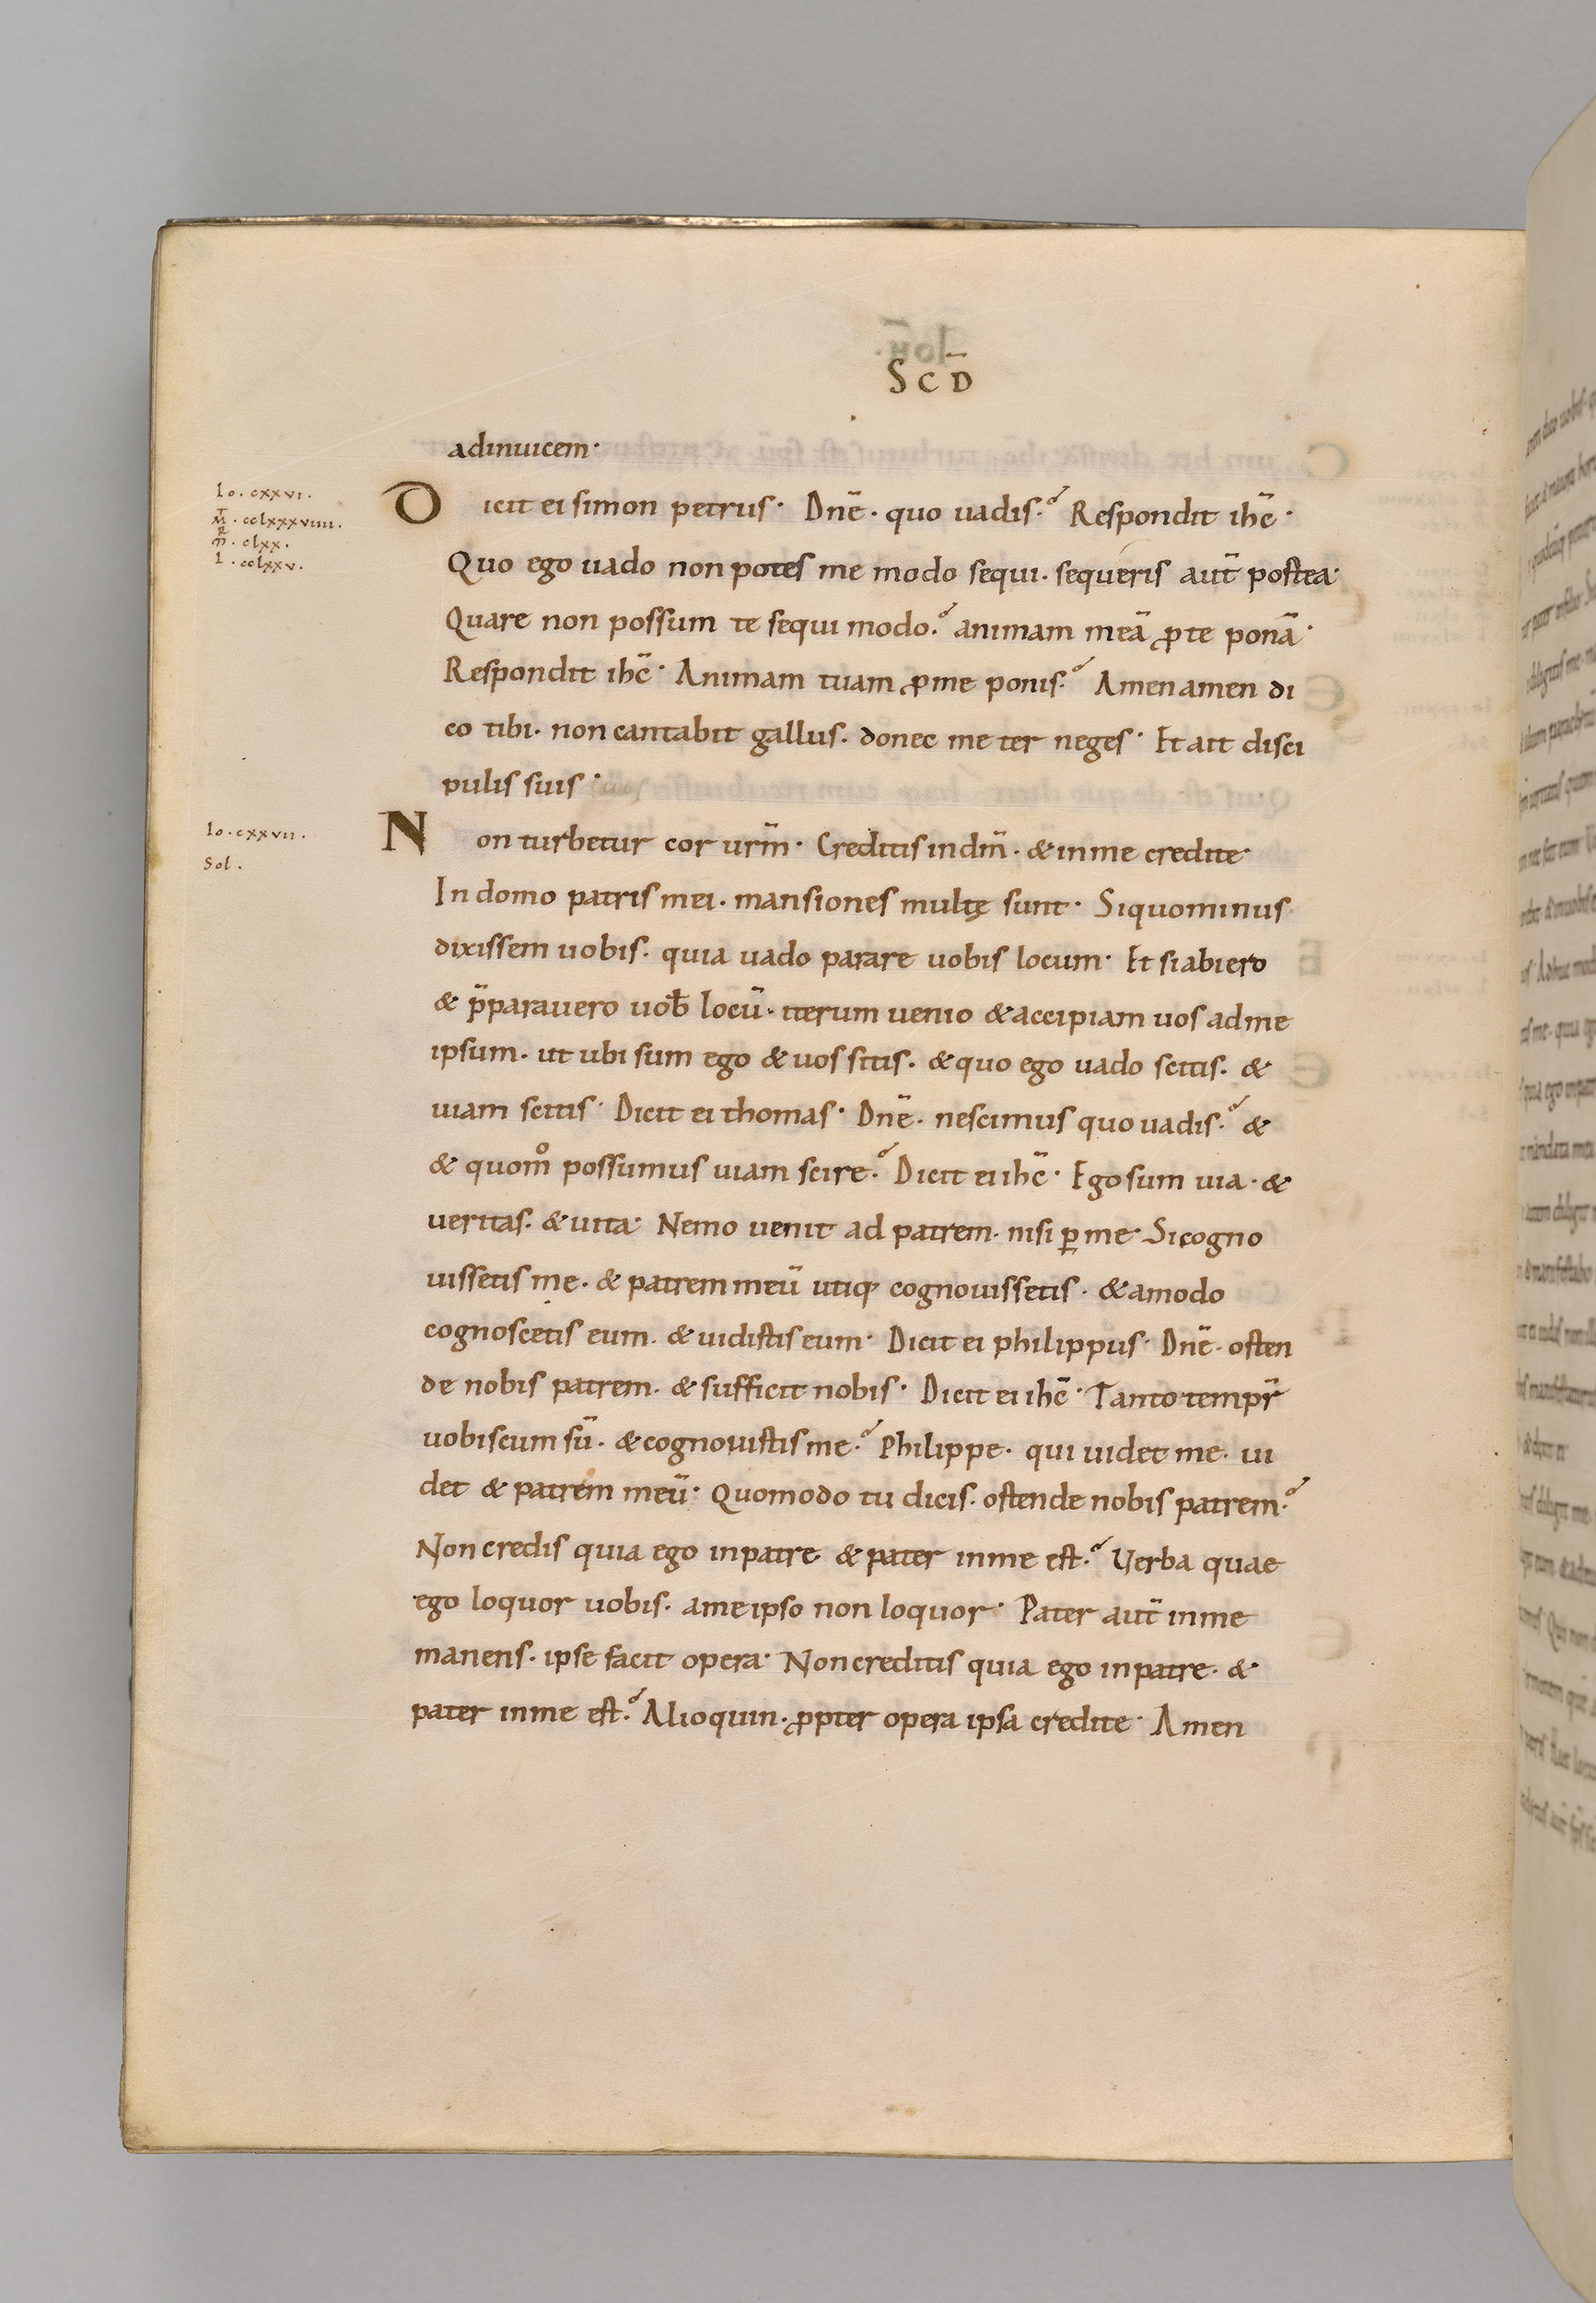 SCD̄
adinuicem·
Io·cxxvi·
M̄·cclxxxviiii·
clxx·
L·cclxxv·
Dicit ei simon petrus· Dn̄e· quo uadis? Respondit ih̄c·
Quo ego uado non potes me modo sequi· sequeris aut̄ postea·
Quare non possum te sequi modo? animam meā ꝓte ponā·
Respondit ih̄c· Animam tuam ꝓme ponis? Amenamen di
co tibi· non cantabit gallus· donec me ter neges· Et ait disci
pulis suis·
Io·cxxvii·
Sol·
Non turbetur cor ur̄m· Creditis indm̄· & inme credite·
In domo patris mei· mansiones multę sunt· Siquominus
dixissem uobis· quia uado parare uobis locum· Et siabiero
& p̄parauero uob̄ locū· iterum uenio & accipiam uos adme
ipsum· ut ubi sum ego & uos sitis· & quo ego uado scitis· &
uiam scitis· Dicit ei thomas· Dn̄e· nescimus quo uadis? &
& quom̊ possumus uiam scire? Dicit ei ih̄c· Ego sum uia· &
ueritas· & uita· Nemo uenit ad patrem· nisi ꝑme· Sicogno
uissetis me· & patrem meū utiq; cognouissetis· & amodo
cognoscetis eum· & uidistis eum· Dicit ei philippus· Dn̄e· osten
de nobis patrem· & sufficit nobis· Dicit ei ih̄c· Tanto tempr̄
uobiscum sū· & cognouistis me? Philippe· qui uidet me· ui
det & patrem meū· Quomodo tu dicis· ostende nobis patrem?
Non credis quia ego inpatre & pater inme est? Uerba quae
ego loquor uobis· ameipso non loquor· Pater aut̄ inme
manens· ipse facit opera· Non creditis quia ego inpatre· &
pater inme est? Alioquin· ꝓpter opera ipsa credite· Amen